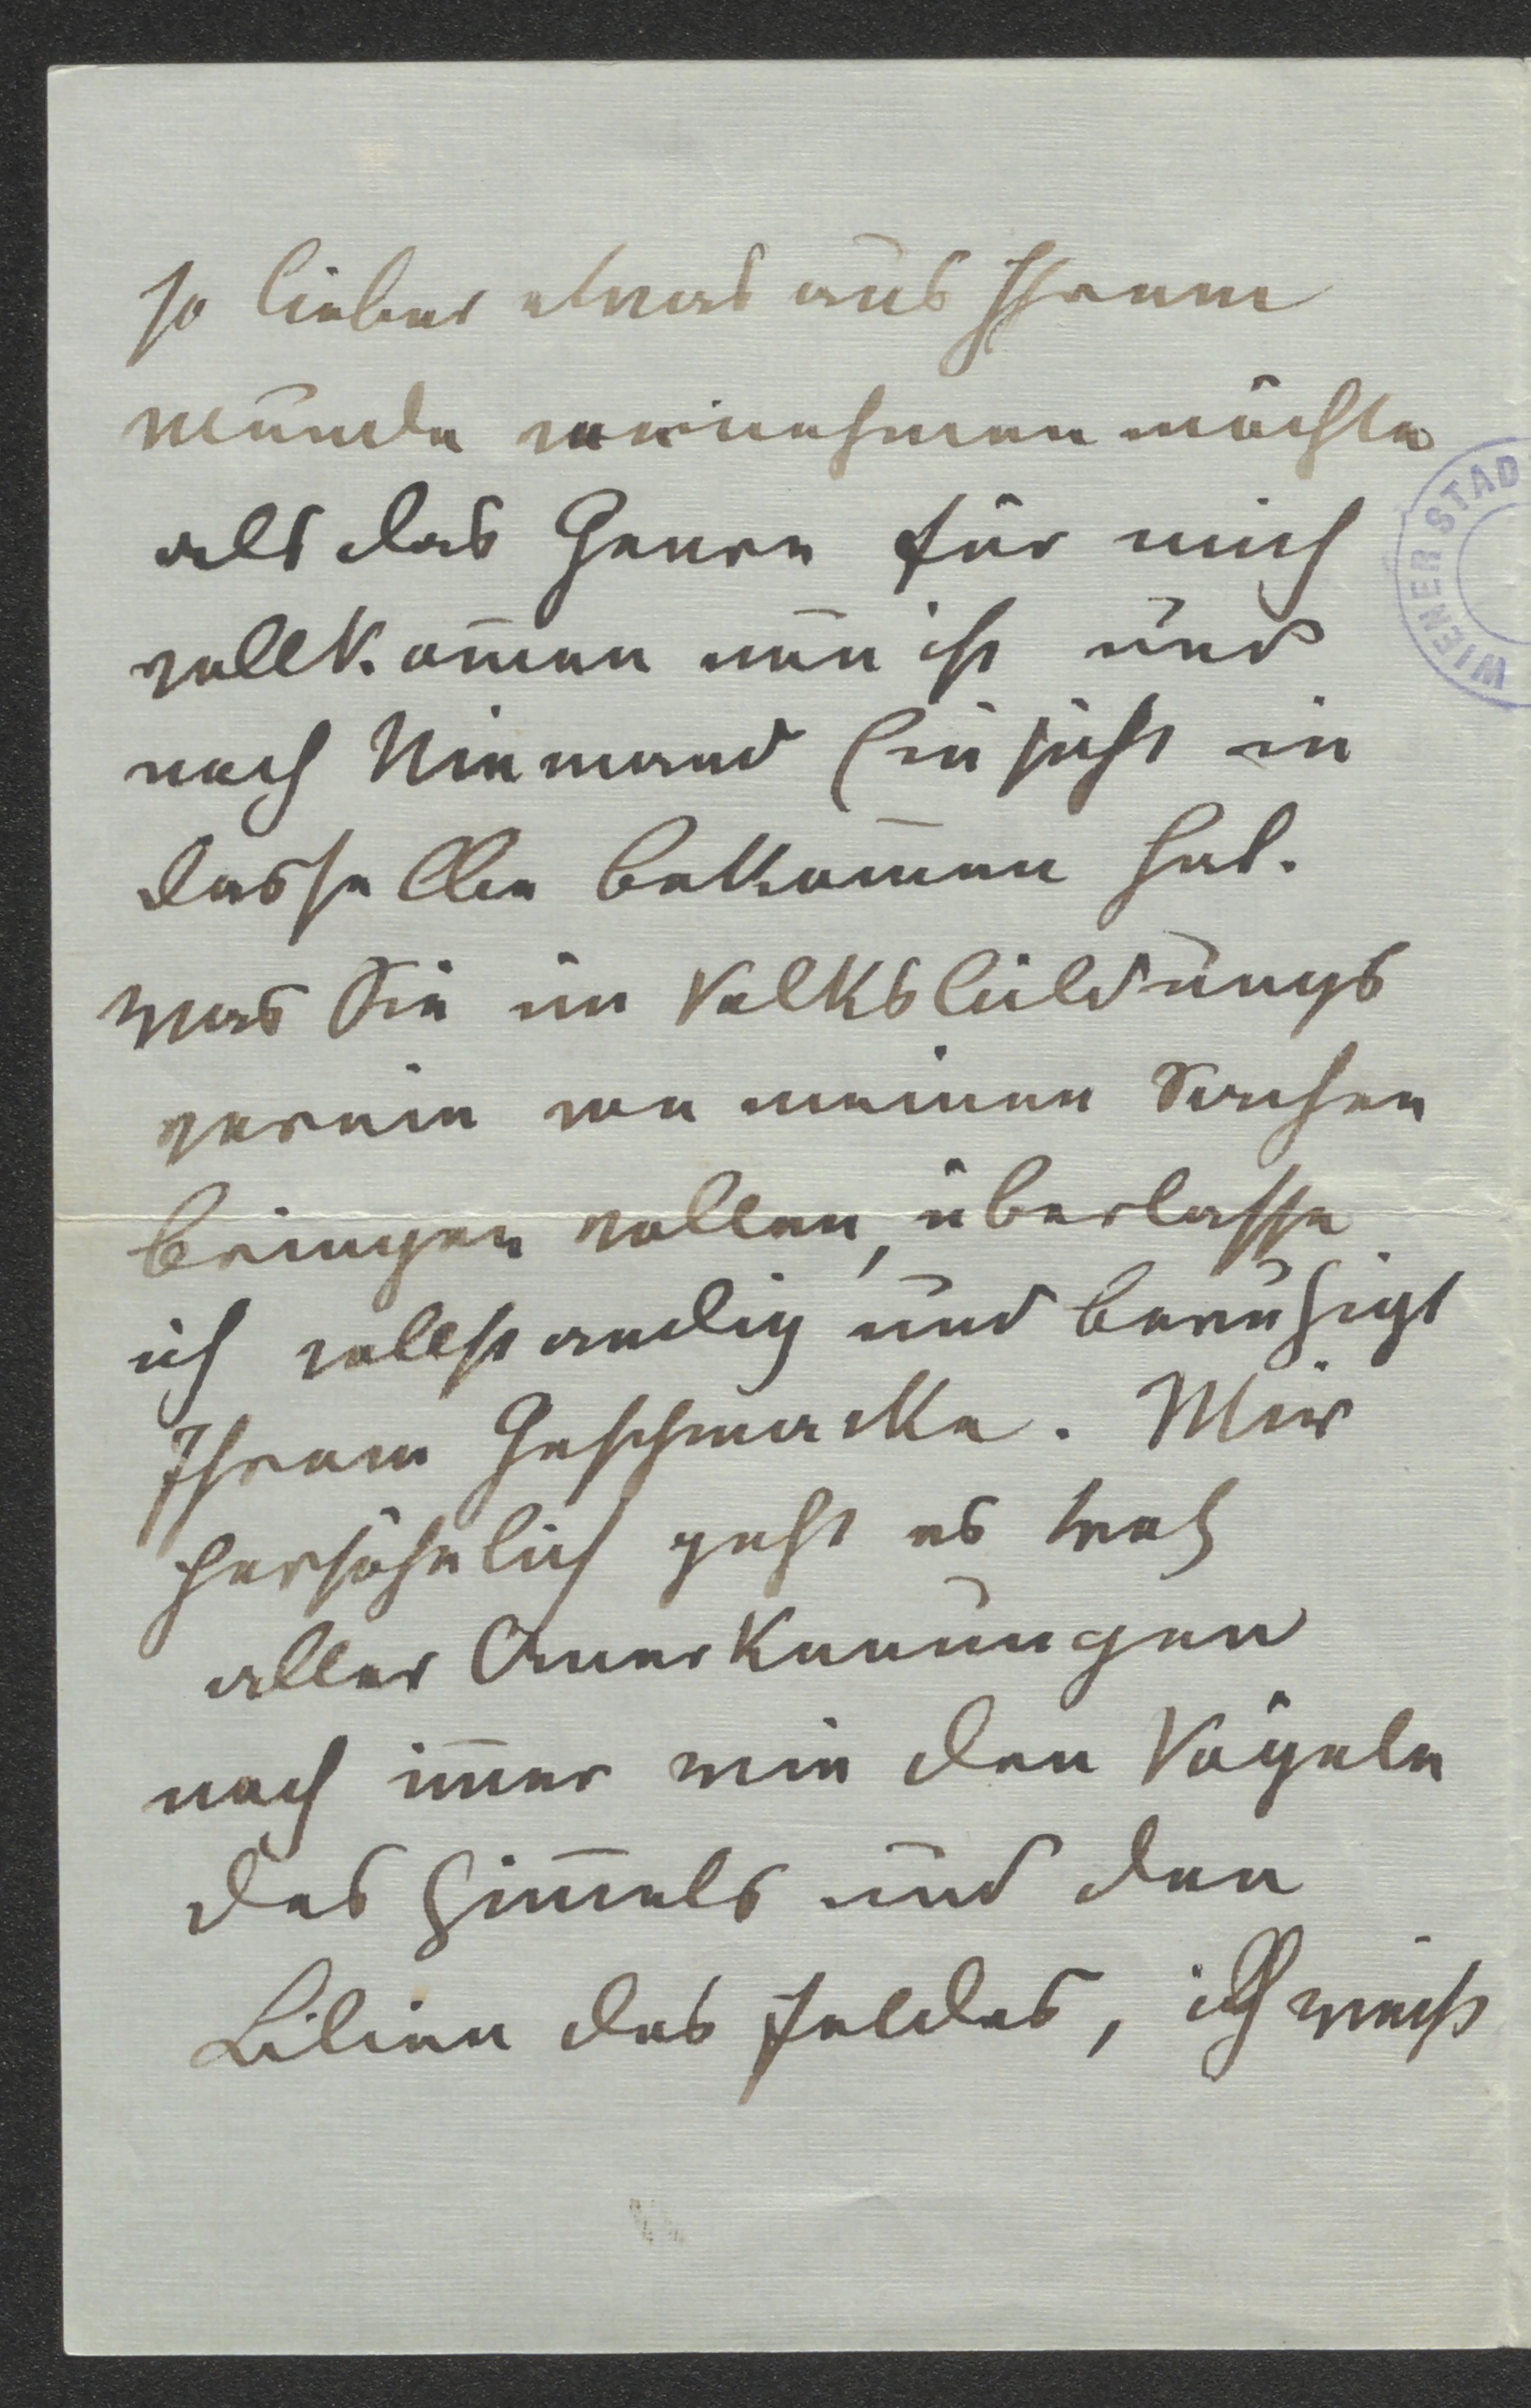 so lieber etwas aus Ihrem
Munde vernehmen möchte
als das Genre für mich
vollkom̅en neu ist und
noch Niemand Einsicht in
dasselbe bekom̅en hat.
Was Sie im Volksbildungs
verein von meinen Sachen
bringen wollen, überlasse
ich vollständig und beruhigt
Ihrem Geschmacke. Mir
persöhnlich geht es trotz
aller Anerkennungen
noch im̅er wie den Vögeln
des Him̅els und den
Lilien des Feldes, ich weiß
WIENER STAD